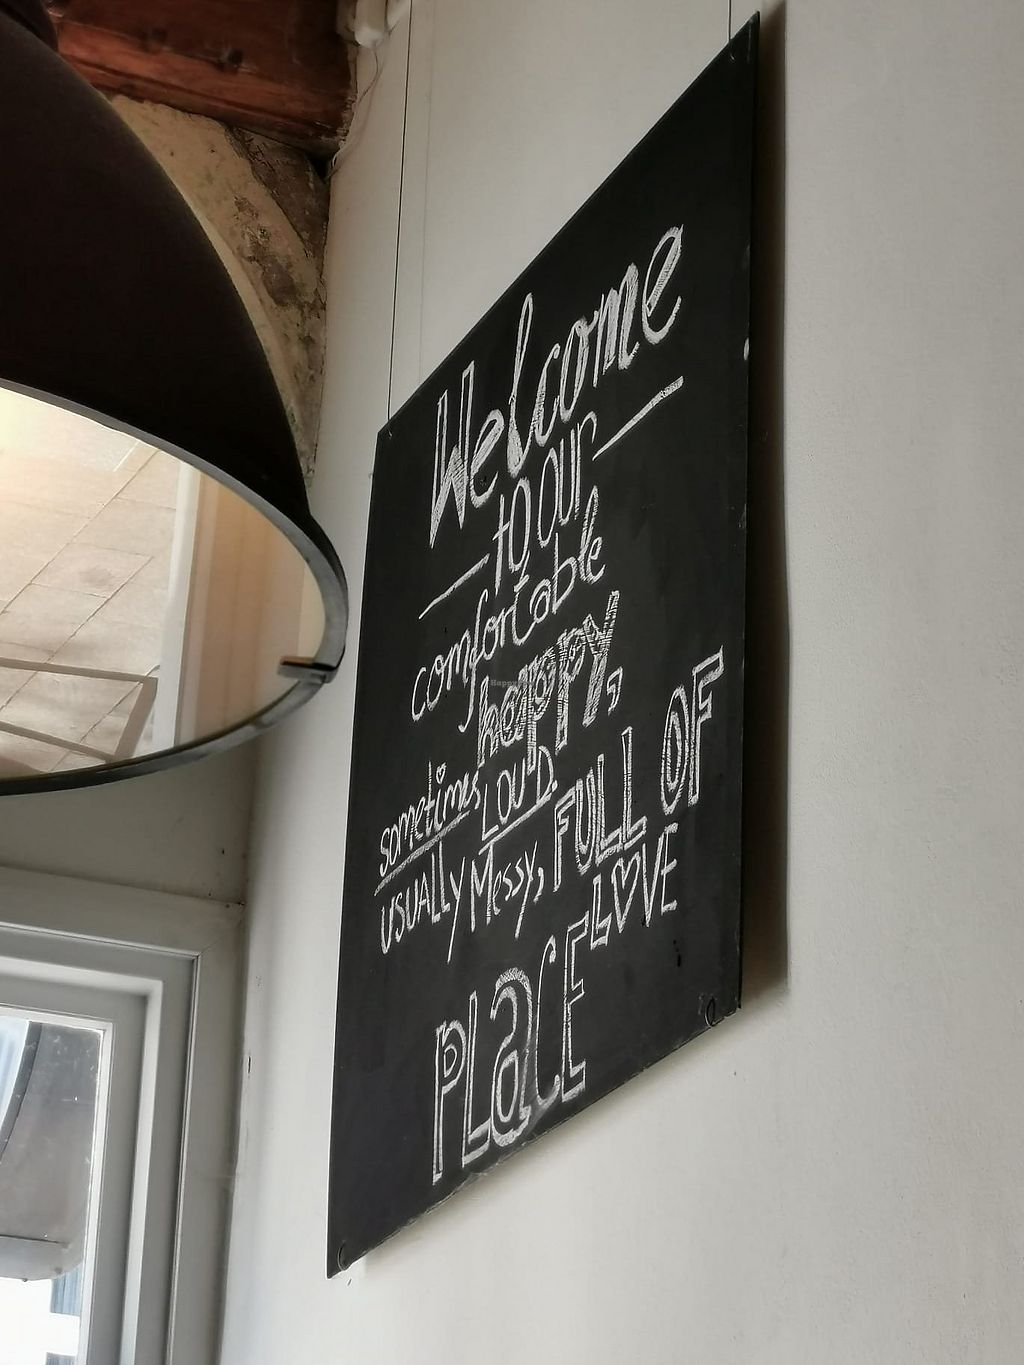 Welcome
to our
comfortable
happy,
sometimes LOUD.
USUALLY Messy, FULL OF
LOVE
PLaCE